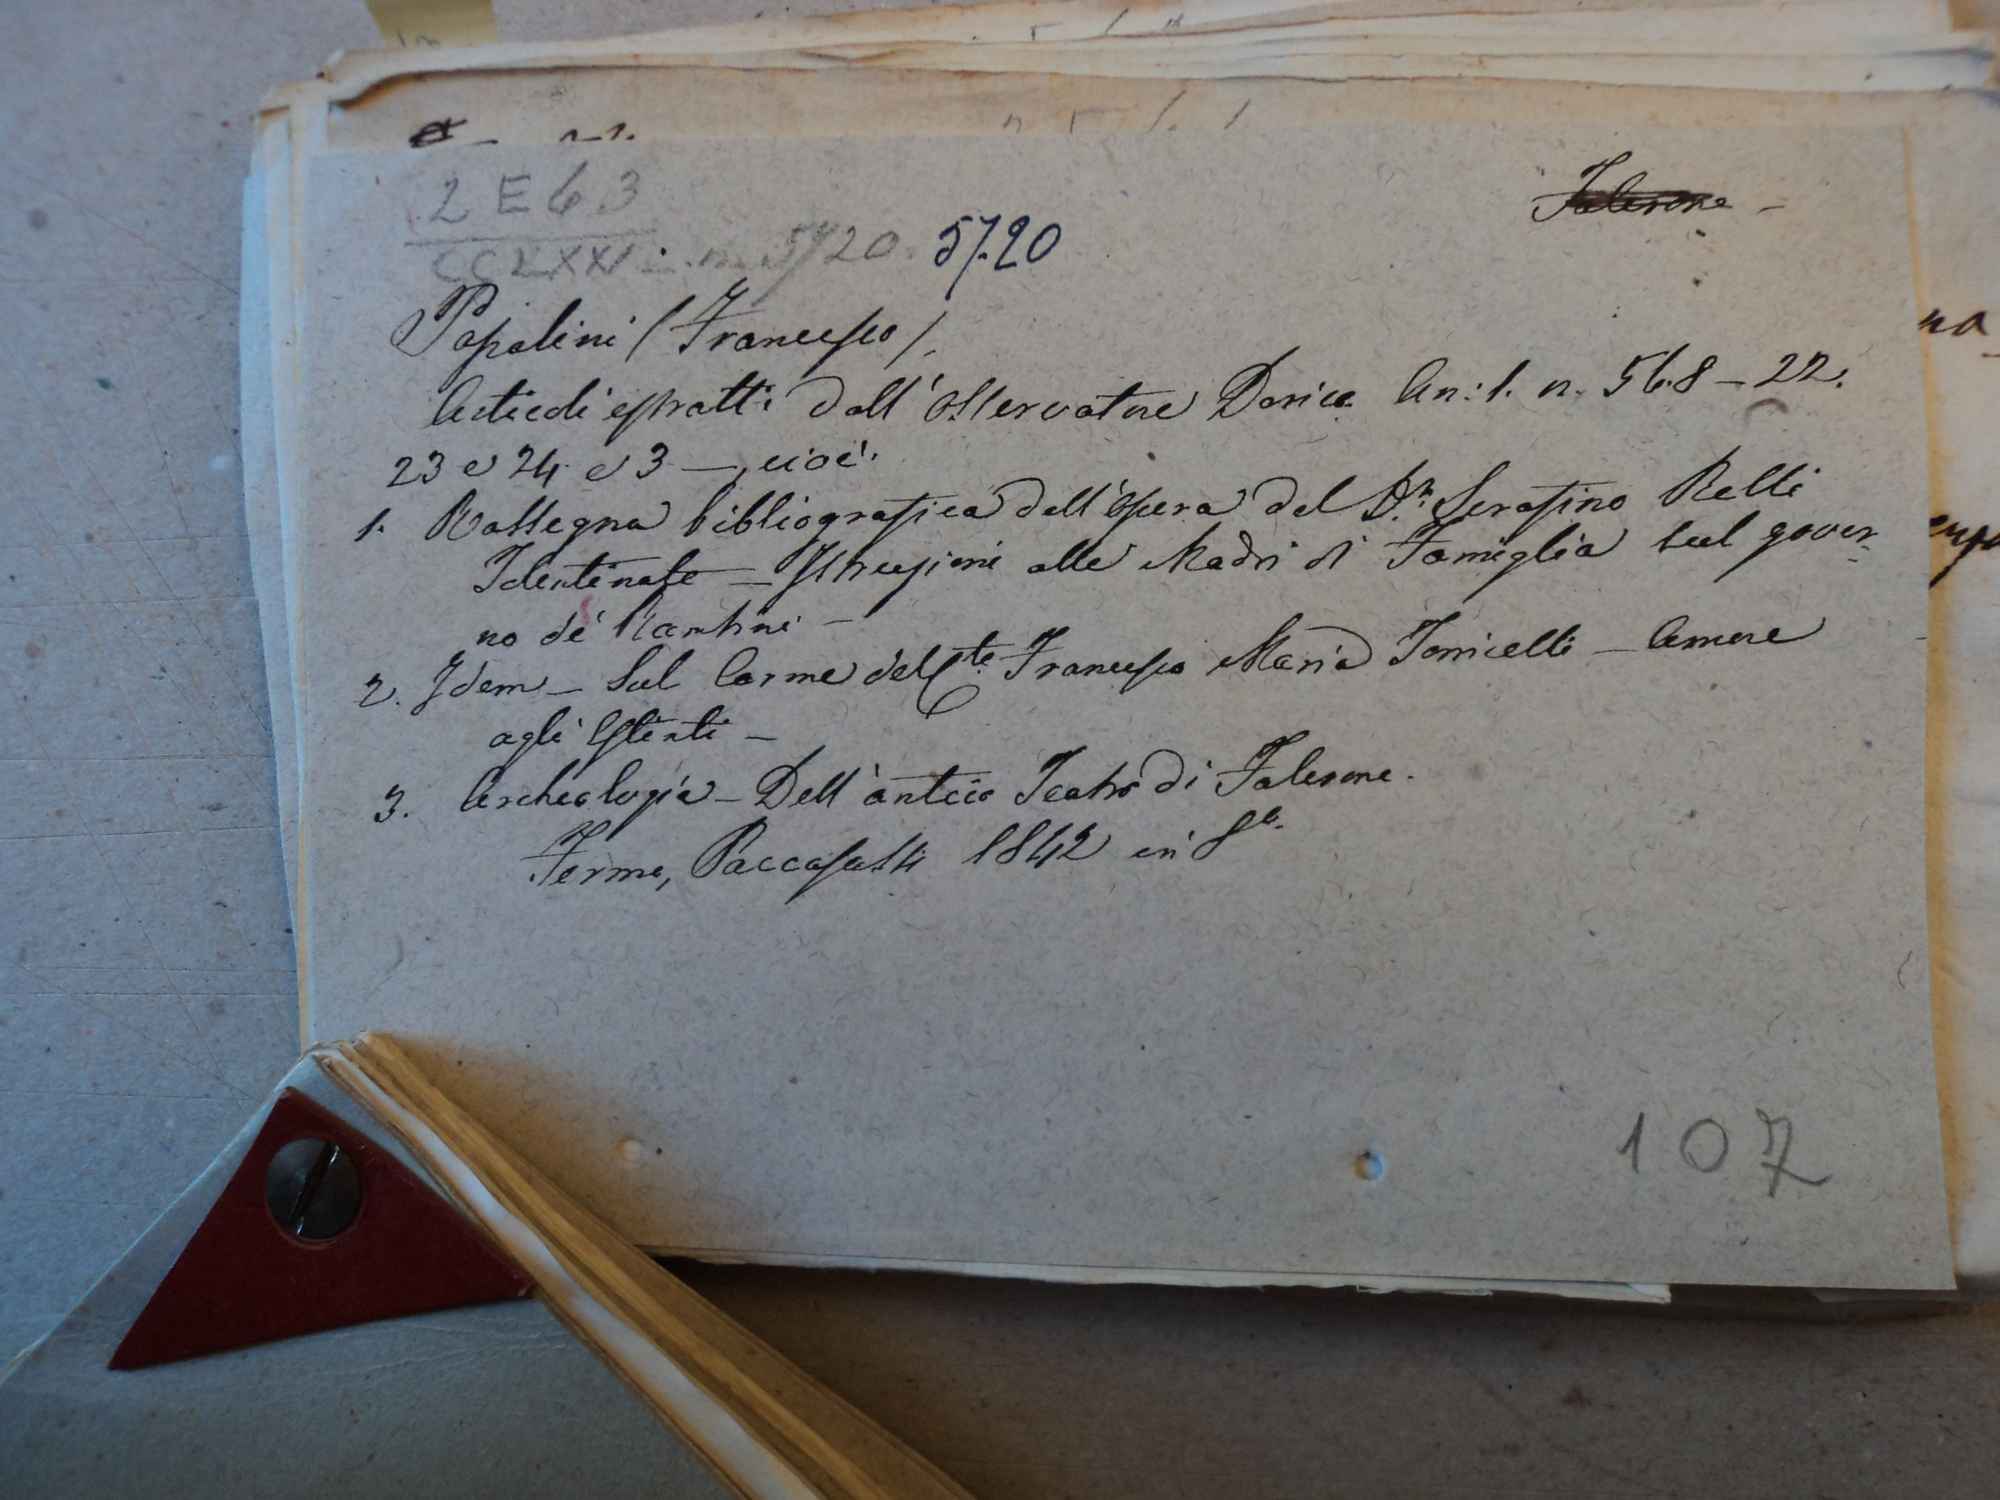 Falerone -
2 E 63
CCLXXI. n. 5720. 5720
Papalini (Francesco).
Articoli estratti dall'Osservatore Dorico An: 1. n. 5 6. 8 - 22.
23 e 24 e 3 -, cioè.
1. Rassegna bibliografica dell'opera del Dr. Serafino Belli
Tolentinate - Istruzioni alle Madri di Famiglia sul gover-
no de' Bambini -
2. Idem - Sul Carme del Cte. Francesco Maria Torricelli - Amore
agli Estinti -
3. Archeologia - Dell'antico Teatro di Falerone.
Fermo, Paccasassi 1842 in 8o.
107